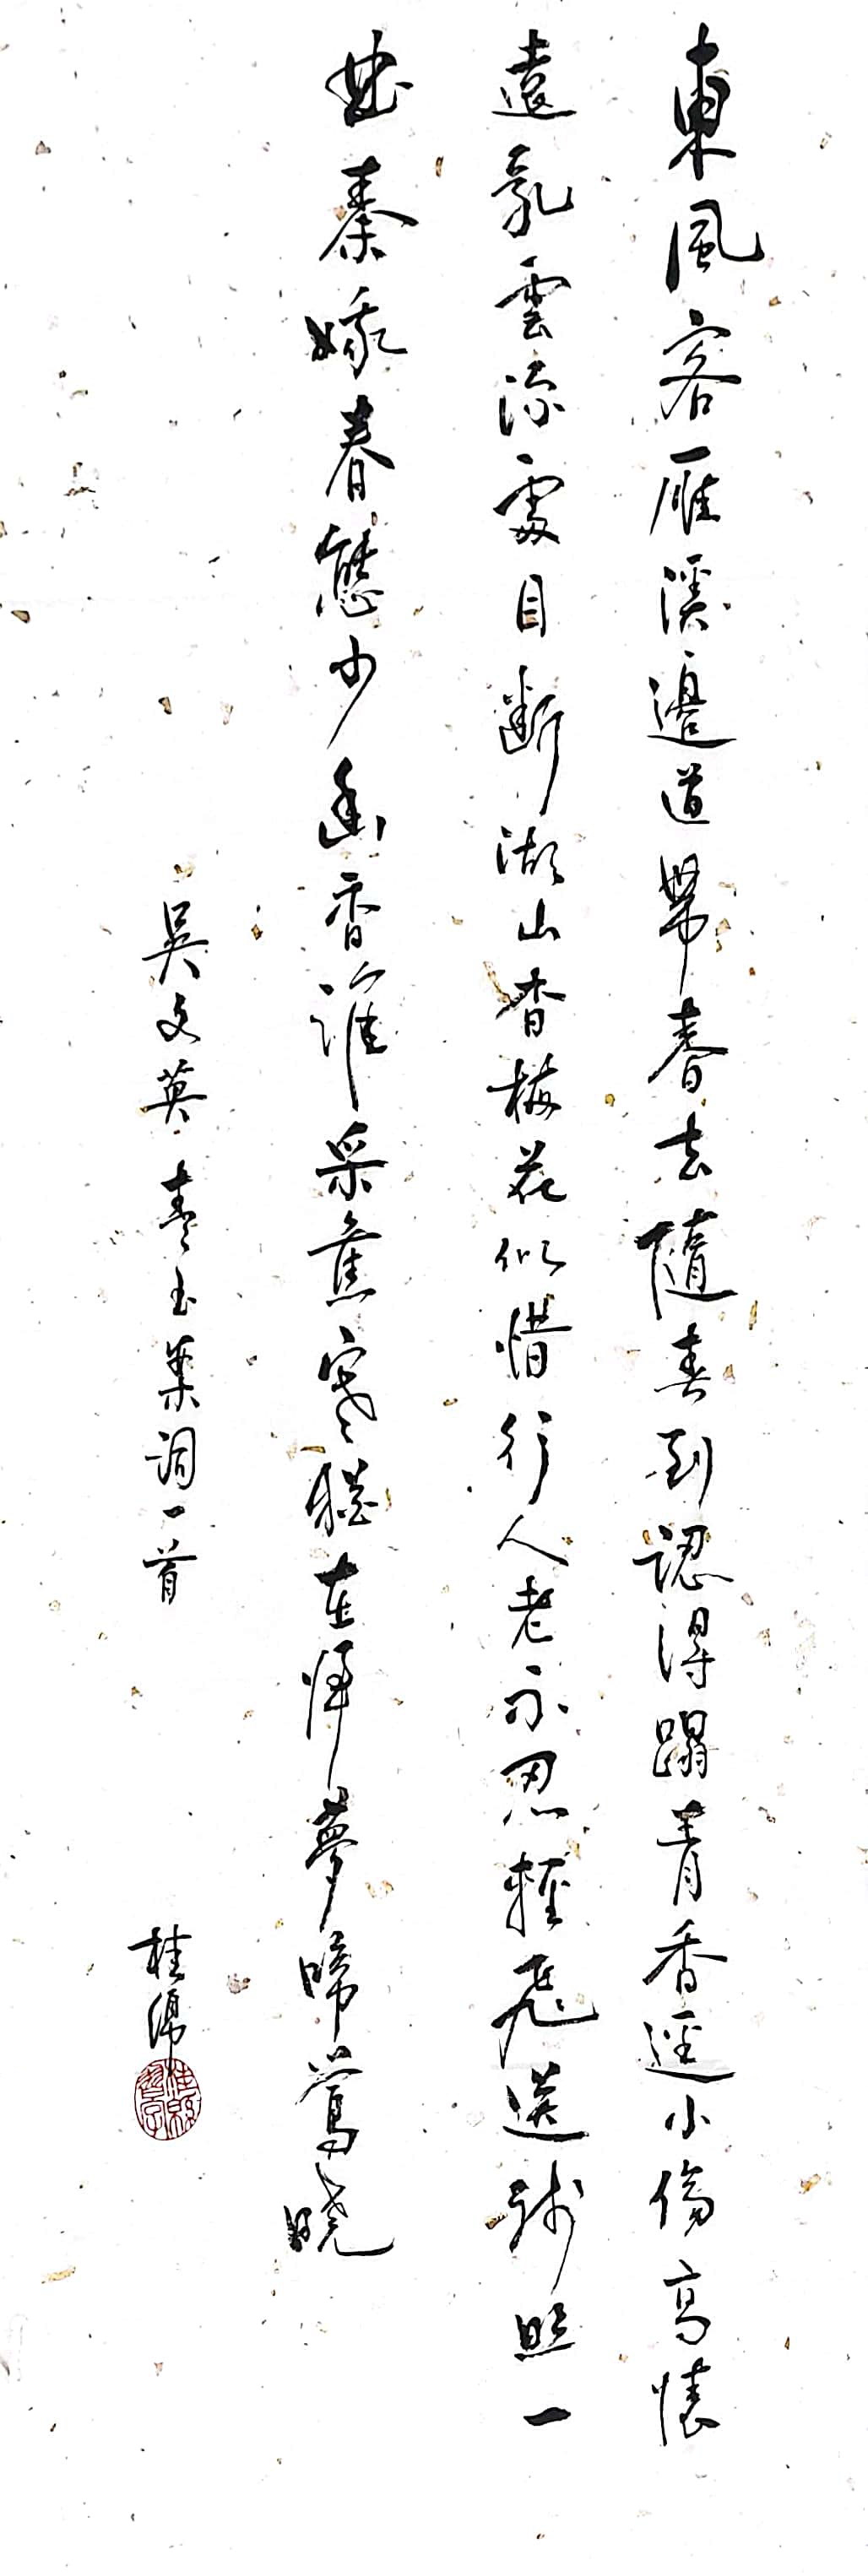 東風客雁溪邊道帶春去隨春到認得踏青香徑小傷高懷
遠亂雲深處目斷湖山杳梅花似惜行人老不忍輕飛送殘照一
曲秦娥春態少幽香誰采舊寒猶在歸夢啼鶯曉
吳文英青玉案詞一首
桂